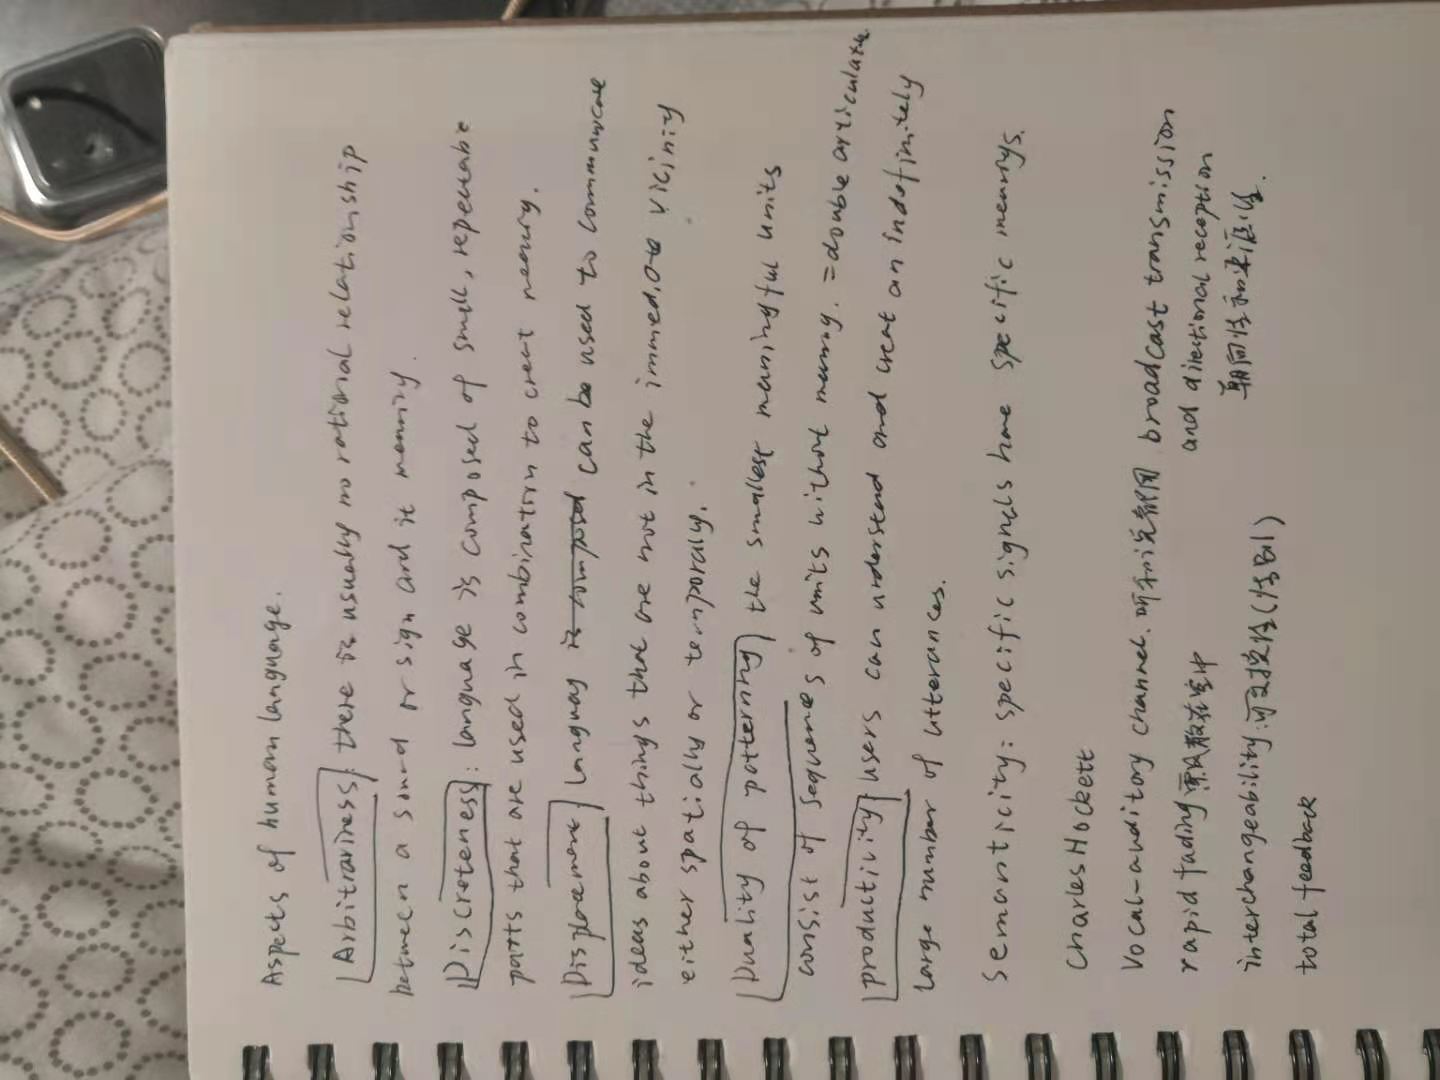 Aspects of human language.
Arbitrariness: there is usually no rational relationship
between a sound or sign and it meaning.
Discreteness: language is composed of small, repeatable
parts that are used in combination to creat meaning.
Displacement: language is composed can be used to communicate
ideas about things that are not in the immediate vicinity
either spatially or temporally.
Duality of patterning the smallest meaningful units
consist of sequences of units without meaning. = double articulate
productivity users can understand and creat an indefinitely
large number of utterances.
Semanticity: specific signals have specific meanings.
Charles Hockett
Vocal-auditory channel. 听和说都同 broadcast transmission
and directional reception
rapid fading 散在空中 朝向性和来源性.
interchangeability: 可交换性(性别)
total feedback